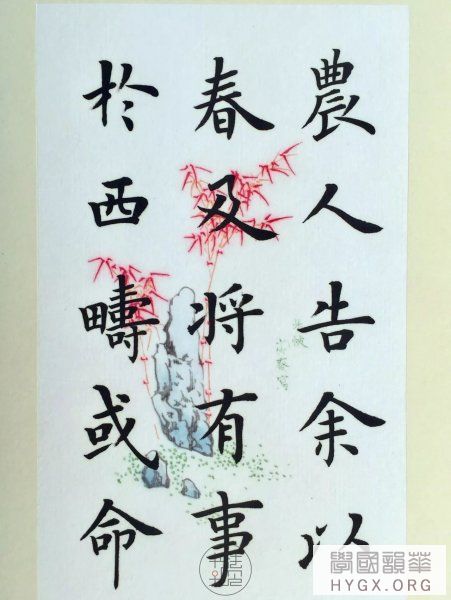 農人告余以
春及将有事
於西疇或命
華韻國學
HYGX.ORG